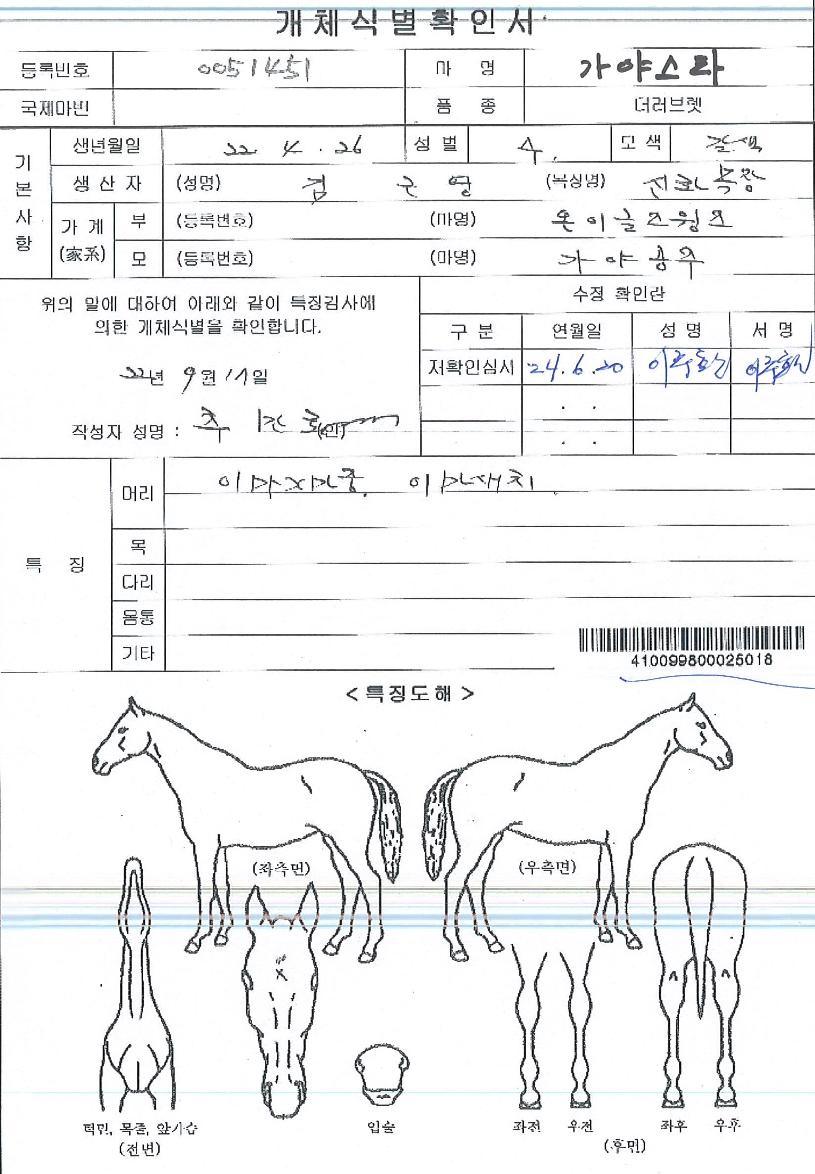 개체식별확인서
등록번호 0051451 마 명 가야스타
국제마번 품 종 더러브렛
기본사항 생년월일 22. 4. 26 성별 수. 모색 갈색
생 산 자 (성명) 김 근 영 (목장명) 목장
가 계 (家系) 부 (등록번호) (마명) 온이글스윙스
모 (등록번호) (마명) 가야공주
위의 말에 대하여 아래와 같이 특징검사에
의한 개체식별을 확인합니다.
수정 확인란
구 분 연월일 성 명 서 명
저확인심사 '24. 6. 20
22년 9월 17일
. .
작성자 성명 : (인)
. .
특 징
머리 이마자마중. 이마새치.
목
다리
몸통
기타
410099800025018
< 특징도해 >
(좌측면) (우측면)
턱면, 목줄, 앞가슴 입술 좌전 우전 좌후 우후
(전면) (후면)